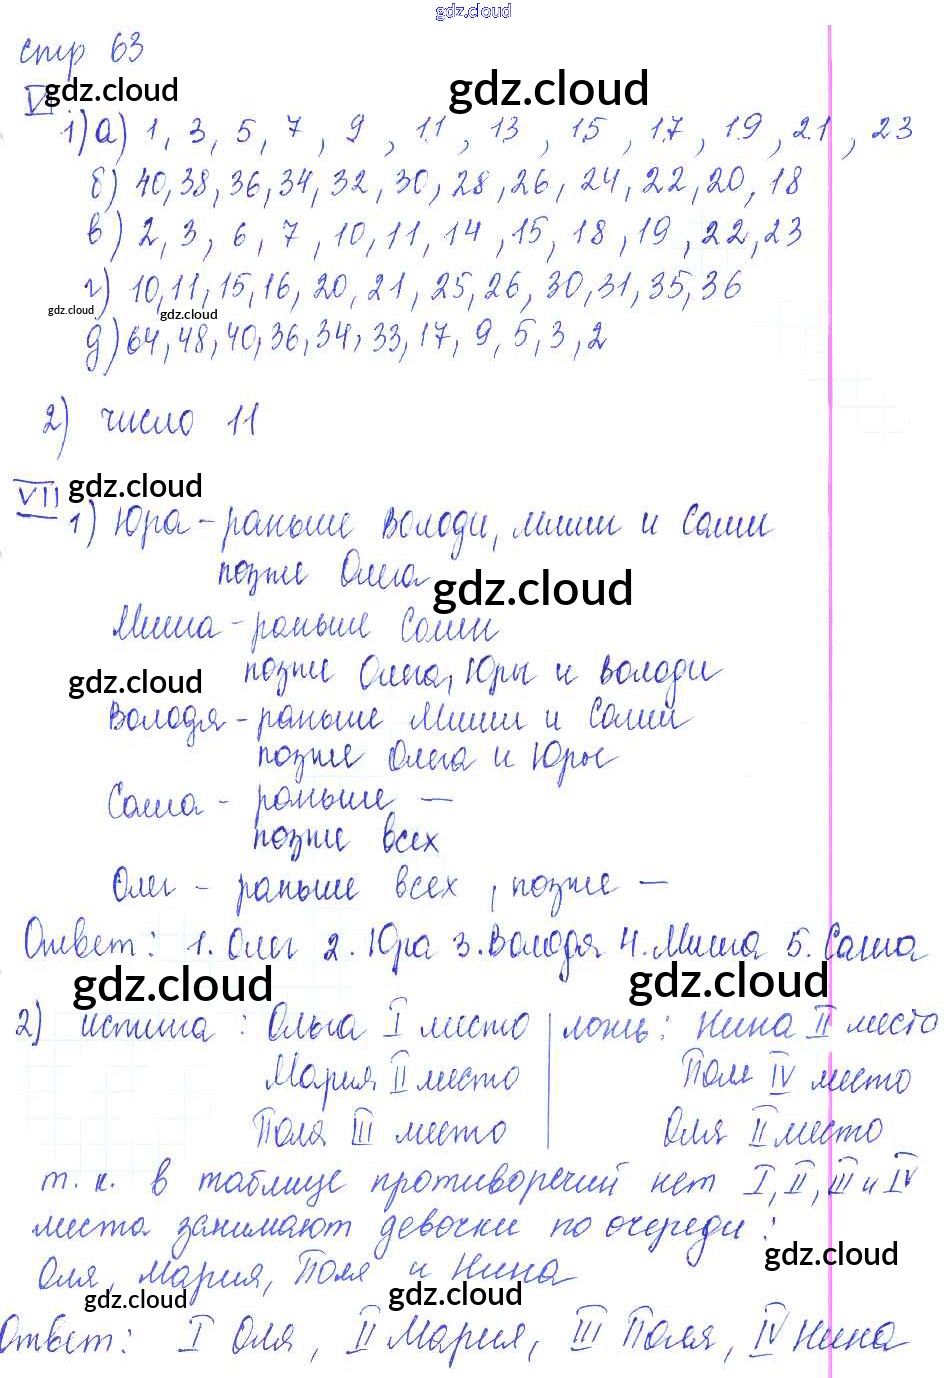 gdz.cloud
стр 63
gdz.cloud gdz.cloud
VI
1) а) 1, 3, 5, 7, 9, 11, 13, 15, 17, 19, 21, 23
б) 40, 38, 36, 34, 32, 30, 28, 26, 24, 22, 20, 18
в) 2, 3, 6, 7, 10, 11, 14, 15, 18, 19, 22, 23
г) 10, 11, 15, 16, 20, 21, 25, 26, 30, 31, 35, 36
gdz.cloud gdz.cloud
д) 64, 48, 40, 36, 34, 33, 17, 9, 5, 3, 2
2) число 11
VII gdz.cloud
1) Юра - раньше Володи, Миши и Саши
позже Олега
gdz.cloud
Миша - раньше Саши
позже Олега, Юры и Володи
gdz.cloud
Володя - раньше Миши и Саши
позже Олега и Юры
Саша - раньше —
позже всех
Олег - раньше всех, позже —
Ответ: 1. Олег 2. Юра 3. Володя 4. Миша 5. Саша
gdz.cloud gdz.cloud
2) истина: Ольга I место | ложь: Нина II место
Мария II место Поля IV место
Поля III место Оля II место
т. к. в таблице противоречий нет I, II, III и IV
места занимают девочки по очереди:
gdz.cloud
Оля, Мария, Поля и Нина
gdz.cloud gdz.cloud
Ответ: I Оля, II Мария, III Поля, IV Нина